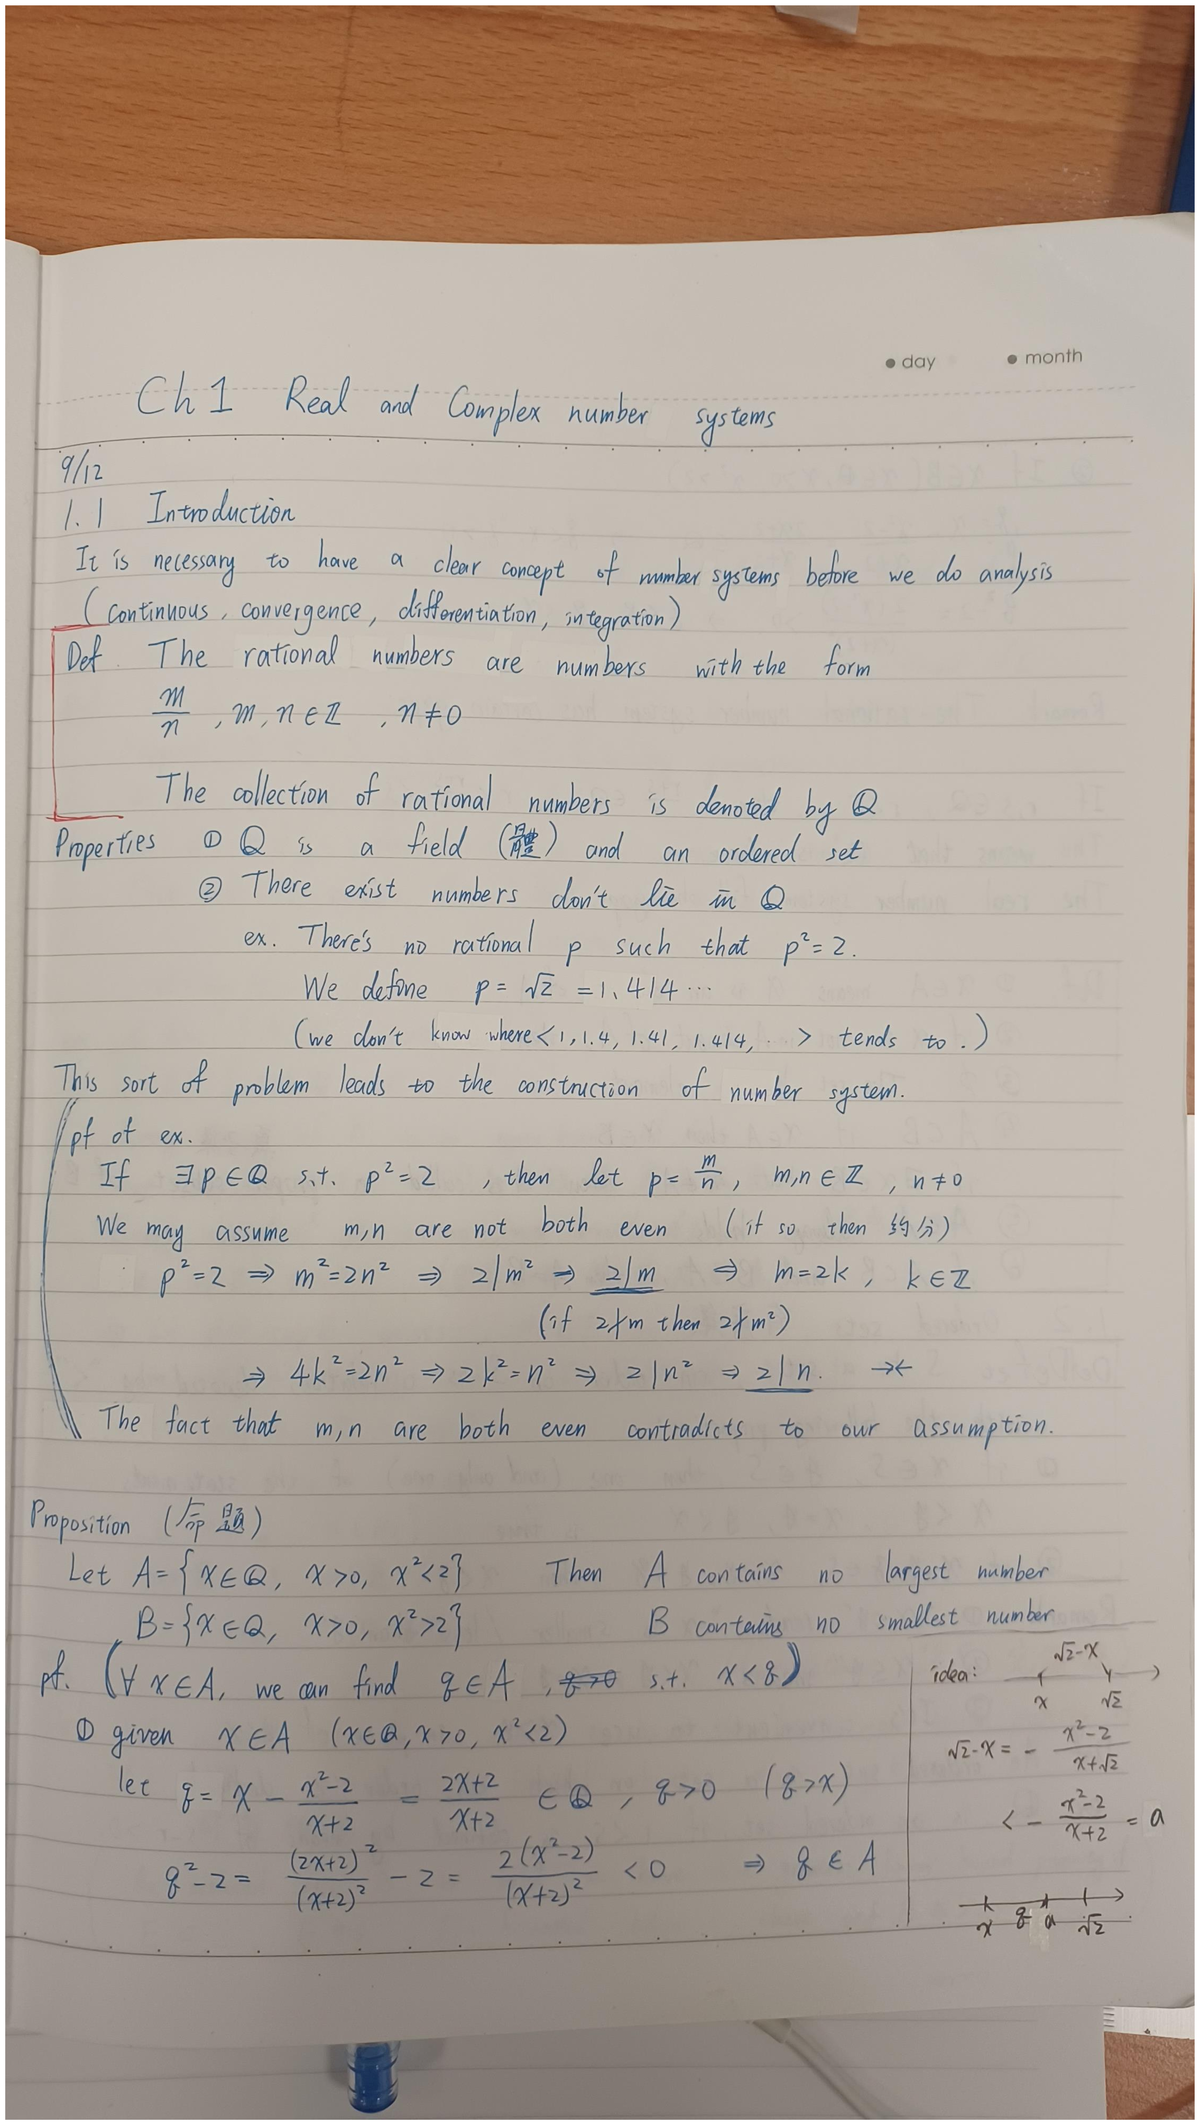 ● day ● month
Ch 1 Real and Complex number systems
9/12
1.1 Introduction
It is necessary to have a clear concept of number systems before we do analysis
(continuous, convergence, differentiation, integration)
Def. The rational numbers are numbers with the form
m/n , m, n ∈ ℤ , n ≠ 0
The collection of rational numbers is denoted by ℚ
Properties ① ℚ is a field (體) and an ordered set
② There exist numbers don't lie in ℚ
ex. There's no rational p such that p² = 2.
We define p = √2 = 1.414 ⋯
(we don't know where < 1, 1.4, 1.41, 1.414, ⋯ > tends to.)
This sort of problem leads to the construction of number system.
pf of ex.
If ∃ p ∈ ℚ s.t. p² = 2 , then let p = m/n , m,n ∈ ℤ , n ≠ 0
We may assume m,n are not both even (if so then 約分)
p² = 2 ⇒ m² = 2n² ⇒ 2|m² ⇒ 2|m ⇒ m = 2k, k ∈ ℤ
(if 2∤m then 2∤m²)
⇒ 4k² = 2n² ⇒ 2k² = n² ⇒ 2|n² ⇒ 2|n. →←
The fact that m,n are both even contradicts to our assumption.
Proposition (命題)
Let A = {x ∈ ℚ, x > 0, x² < 2} Then A contains no largest number
B = {x ∈ ℚ, x > 0, x² > 2} B contains no smallest number
pf. (∀ x ∈ A, we can find q ∈ A , q>0 s.t. x < q)
① given x ∈ A (x ∈ ℚ, x > 0, x² < 2)
let q = x − (x²−2)/(x+2) = (2x+2)/(x+2) ∈ ℚ , q > 0 (q > x)
q² − 2 = (2x+2)²/(x+2)² − 2 = 2(x²−2)/(x+2)² < 0 ⇒ q ∈ A
idea: √2−x
x √2
√2−x = − (x²−2)/(x+√2)
< − (x²−2)/(x+2) = a
x q a √2